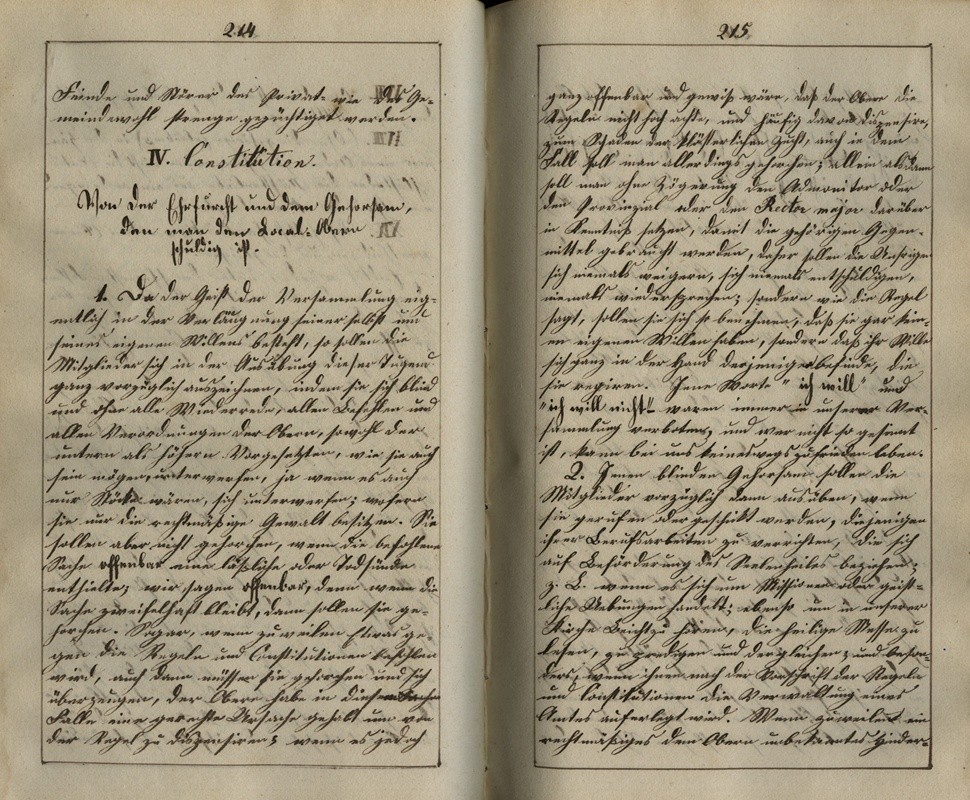 214
Feinde und Störer des Privat- wie des Ge-
meindewohl strenge gezüchtiget werden.
IV. Constitution.
Von der Ehrfurcht und dem Gehorsam,
den man den Local-Obern
schuldig ist.
1. Da der Geist der Versammlung eig-
entlich in der Verläugnung seiner selbst und
seines eigenen Willens besteht, so sollen die
Mitglieder sich in der Ausübung dieser Tugend
ganz vorzüglich auszeichnen, indem sie sich blind
und ohne alle Wiederrede, allen Befehlen und
allen Verordnungen der Obern, sowohl der
untern als höhern Vorgesetzten, wie sie auch
sein mögen, unterwerfen, ja wenn es auch
nur Stöcke wären, sich unterwerfen; wofern
sie nur die rechtmäßige Gewalt besitzen. Sie
sollen aber nicht gehorchen, wenn die befohlene
Sache offenbar eine läßliche oder Todsünde
enthielte; wir sagen offenbar, denn wenn die
Sache zweifelhaft bleibt, dann sollen sie ge-
horchen. Sogar, wenn zuweilen etwas ge-
gen die Regeln und Constitutionen befohlen
wird, auch dann müssen sie gehorchen und sich
überzeugen, der Obere habe in diesem
Falle eine gerechte Ursache gehabt um von
der Regel zu dispensiren; wenn es jedoch
215
ganz offenbar und gewiß wäre, daß der Obere die
Regeln nicht hoch achte, und häufig davon dispensire,
zum Schaden der klösterlichen Zucht, auch in dem
Fall soll man allerdings gehorchen; allein alsdann
soll man ohne Zögerung den Admonitor oder
den Provinzial oder den Rector major darüber
in Kenntniß setzen, damit die gehörigen Gegen-
mittel gebraucht werden, daher sollen die Unsrigen
sich niemals weigern, sich niemals entschuldigen,
niemals wiedersprechen; sondern wie die Regel
sagt, sollen sie sich so benehmen, daß sie gar kein-
en eigenen Willen haben, sondern daß ihr Wille
sich ganz in der Hand derjenigen befinde, die
sie regiren. Jene Worte "ich will" und
"ich will nicht" waren immer in unserer Ver-
sammlung verboten, und wer nicht so gesinnt
ist, kann bei uns keineswegs zufrieden leben.
2. Jenen blinden Gehorsam sollen die
Mitglieder vorzüglich dann ausüben, wenn
sie gerufen oder geschikt werden, diejenigen
ihrer Berufsarbeiten zu verrichten, die sich
auf Beförderung des Seelenheiles beziehen;
z. B. wenn es sich um Missionen oder geist-
liche Uebungen handelt; ebenso um in unserer
Kirche Beicht zu hören, die heilige Messe zu
lesen, zu predigen und dergleichen; und beson-
ders, wenn ihnen nach der Vorschrift der Regeln
und Constitutionen die Verwaltung eines
Amtes auferlegt wird. Wenn zuweilen ein
rechtmäßiges dem Obern unbekanntes Hinder-